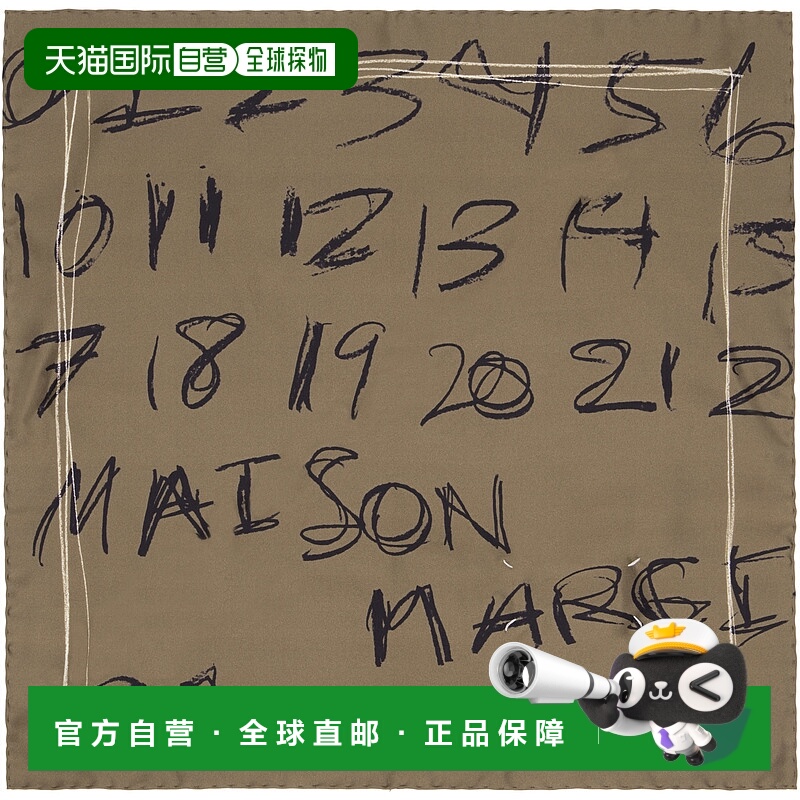 天猫国际自营全球探物
0 1 2 3 4 5 6
10 11 12 13 14 15
7 18 19 20 21 2
MAISON
MARGI
官方自营·全球直邮·正品保障